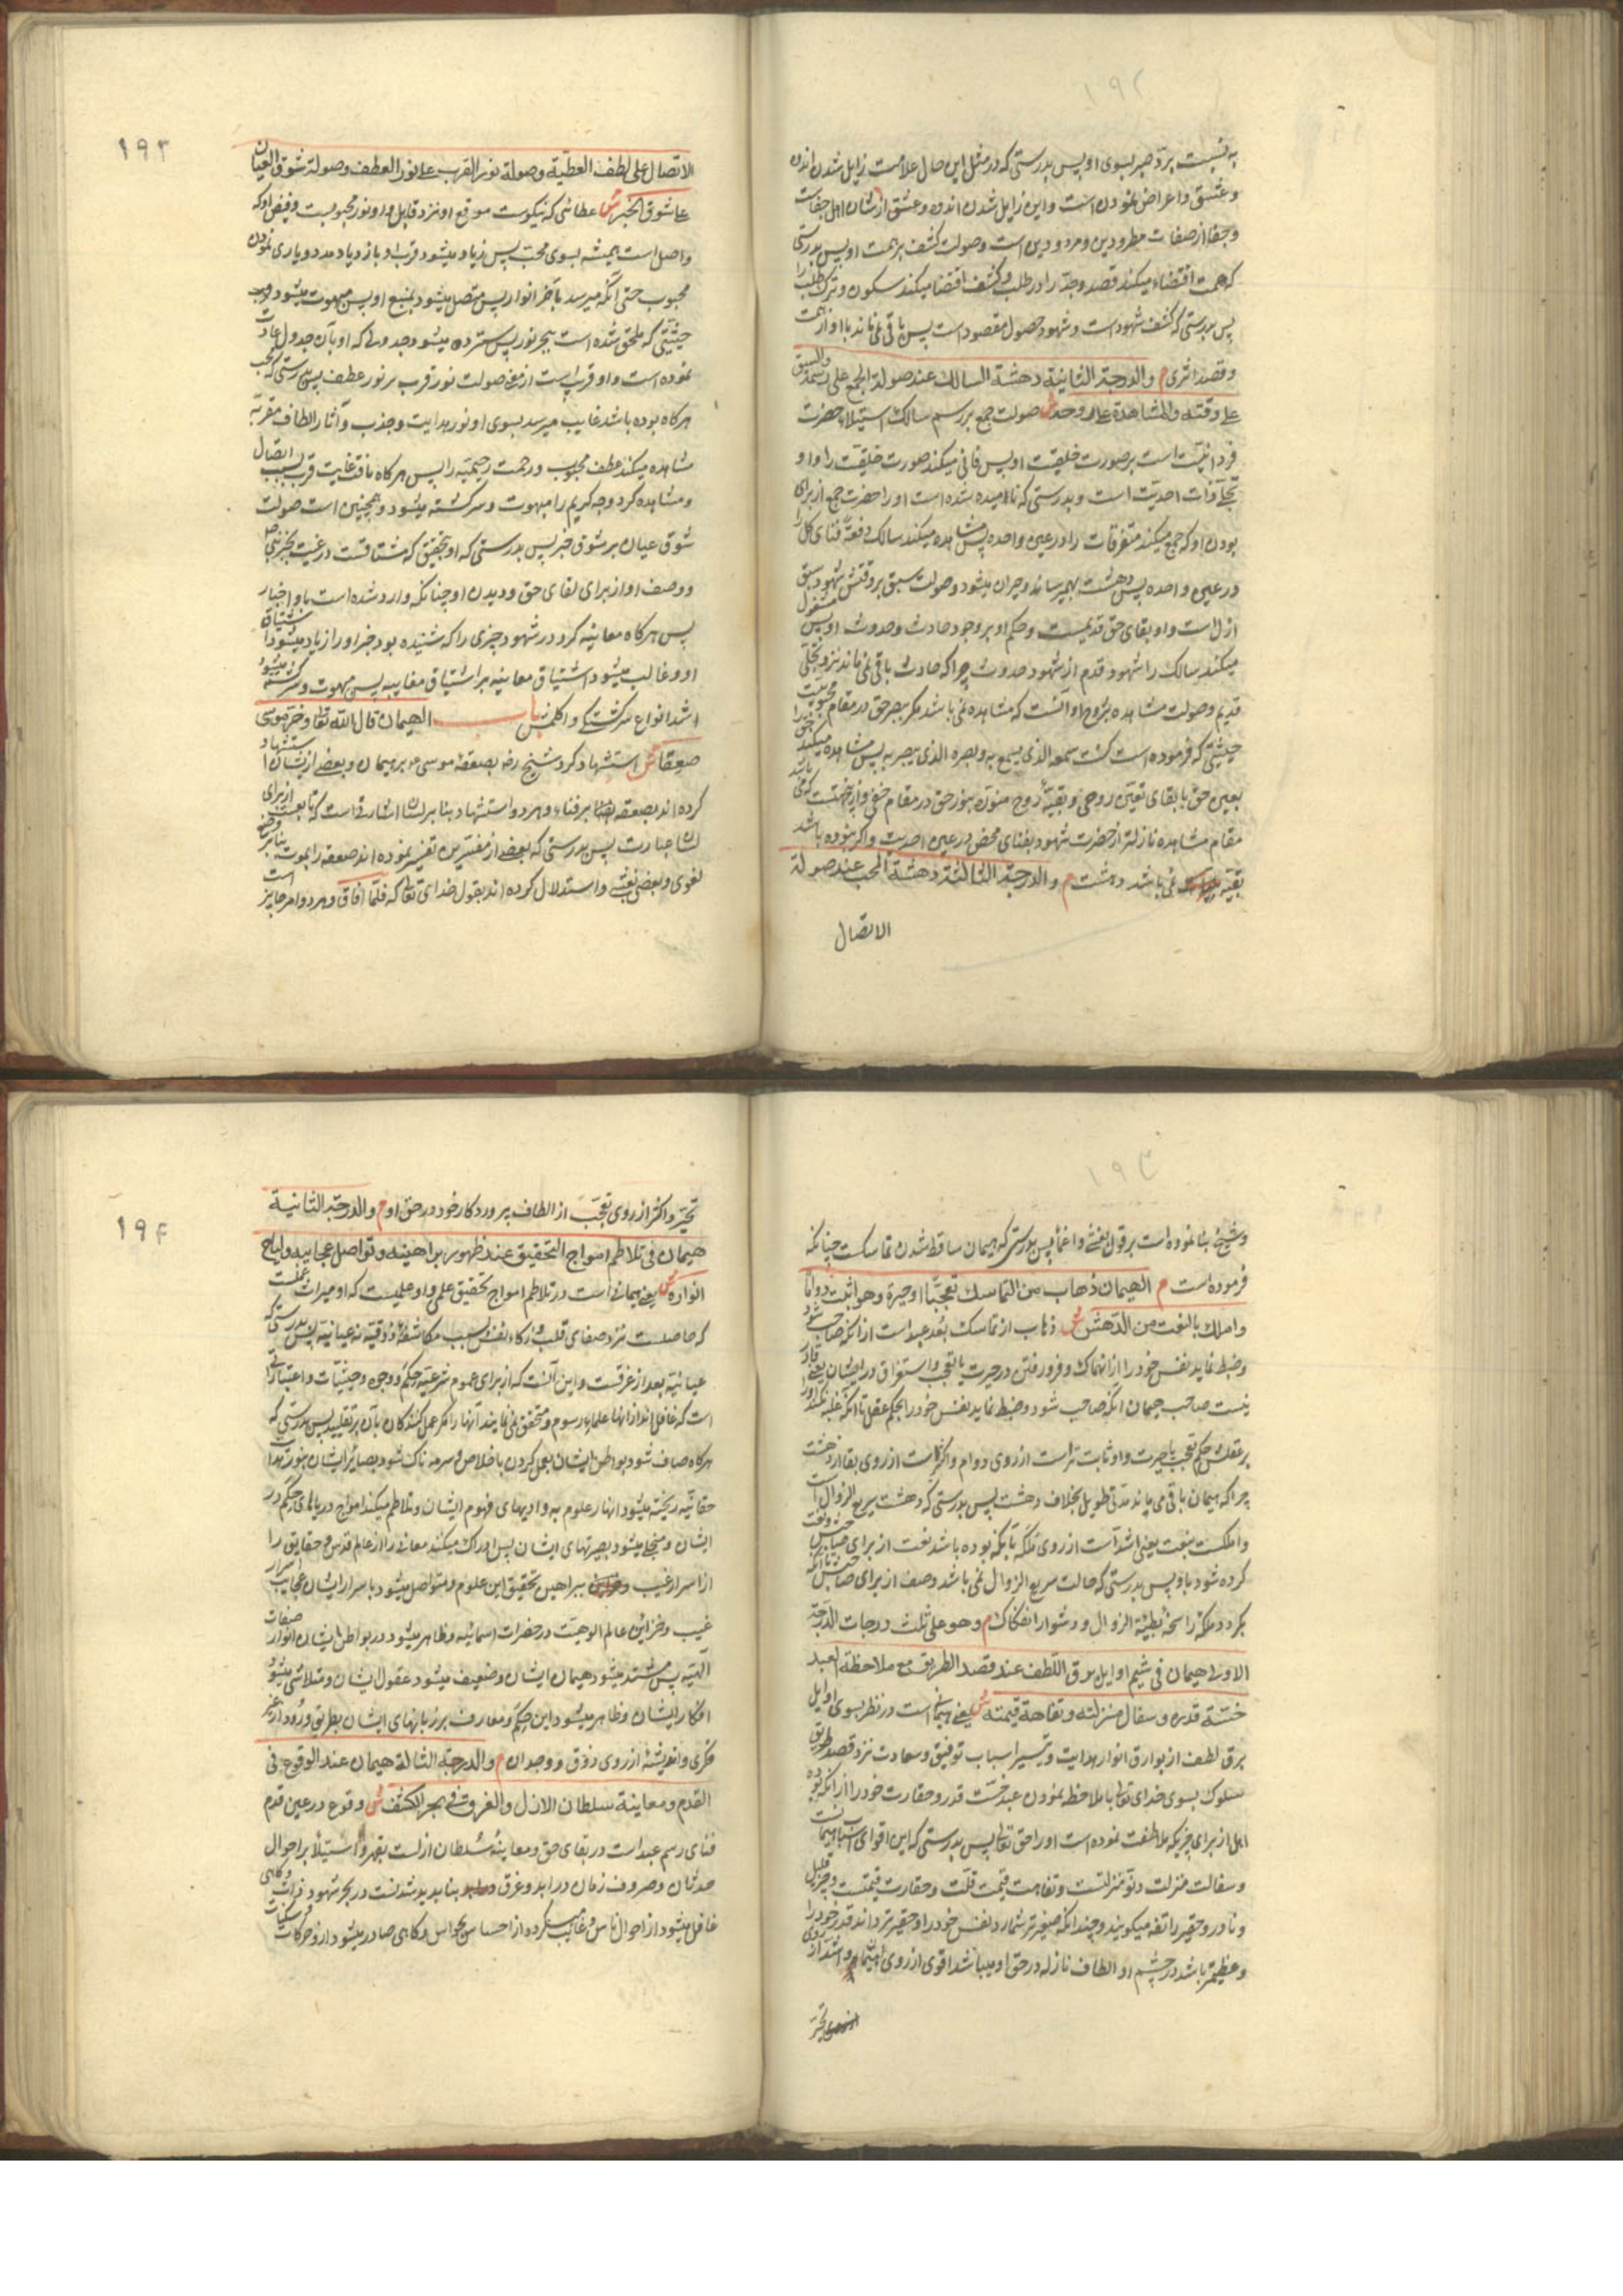 ۱۹۲
به نسبت ببرد صبر بسوی او پس بدرستی که در مثل این حال علامت زایل شدن اندوه
و عشق و اعراض نمودن است و این زایل شدن اندوه و عشق از شان اهل جفاست
و جفا از صفات مطرودین و مردودین است و صولت کشف بر همت او پس بدرستی
که همت اقتضاء میکند قصد و جد را در طلب و کشف اقتضا میکند سکون و ترک طلب را
پس بدرستی که کشف شهود است و شهود حصول مقصود است پس باقی نمی ماند با او از همت
و قصد اثری م والدرجة الثانیة دهشة السالك عند صولة الجمع علی رسمه والسبق
علی وقته والمشاهدة علی روحه ش صولت جمع بر رسم سالک استیلاء حضرت
فردانیت است بر صورت خلیقت او پس فانی میکند صورت خلیقت را و او
تجلی ذات احدیت است و بدرستی که نامیده شده است او را حضرت جمع از برای
بودن او که جمع میکند متفرقات را در عین واحده پس مشاهده میکند سالک دفعةً فنای کل را
در عین واحده پس دهشت بهم میرساند و حیران میشود و صولت سبق بر وقتش شهود سبق
ازل است و او بقای حق قدیمست و حکم او بر وجود حادث و حدوث او پس مشغول
میکند سالک را شهود قدم از شهود حدوث چرا که حادث باقی نمی ماند نزد تجلی
قدیم و صولت مشاهده بر روح او آنست که مشاهده نمی باشد مگر ببصر حق در مقام محبوبیت
حیثیتی که فرموده است کنت سمعه الذی یسمع به و بصره الذی یبصر به پس مشاهده میکند حق را
بعین حق با بقای تعین روحی و بقیهٔ روح منوره بنور حق در مقام خفی و از آنجهتست که می باشد
مقام مشاهده نازلتر از حضرت شهود بفنای محض در عین احدیت و اگر نبوده باشد
بقیه نمی باشد دهشت م والدرجة الثالثة دهشة المحب عند صولة
الاتصال
۱۹۳
الاتصال علی لطف العطیة وصولة نور القرب علی نور العطف وصولة شوق العیان
علی شوق الخبر ش عطائی که نیکوست موقع او نزد قابل او نور محبوبست و فیض او که
واصل است همیشه بسوی محب پس زیاد میشود قرب او بازدیاد مدد و یاری نمودن
محبوب حتی آنکه میرسد بآخر انوار پس متصل میشود بمنبع او پس مبهوت میشود
حیثیتی که ملحق شده است ببحر نور پس سترده میشود جدولی که او بآن جدول عادت
نموده است و او قرب است از معنی صولت نور قرب بر نور عطف پس بدرستی که محب
هرگاه بوده باشد غایب میرسد بسوی او نور هدایت و جذب و آثار الطاف مقربه
مشاهده میکند عطف محبوب و رحمت رحیمیّه را پس هرگاه یافت غایت قرب بسبب اتصال
و مشاهده کرد وجه کریم را مبهوت و سرگشته میشود و همچنین است صولت
شوق عیان بر شوق خبر پس بدرستی که او بتحقیق که مشتاقست در غیبت بخبر حق
و وصف او از برای لقای حق و دیدن او چنانکه وارد شده است باو اخبار
پس هرگاه معاینه کرد در شهود چیزی را که شنیده بود خبر او را زیاد میشود اشتیاق
او و غالب میشود اشتیاق معاینه بر اشتیاق مغایبه پس مبهوت و سرگشته میشود
اشد انواع سرگشتگی و اکمل باب الهیمان قال الله تعالی وخر موسی
صعقا ش استشهاد کرد شیخ رضه بصعقهٔ موسی ع بر هیمان و بعضی از ایشان استشهاد
کرده اند بصعقه بر فناء و هر دو استشهاد بنا بر لسان اشارتست که تابعست از برای
لسان عبارت پس بدرستی که بعضی از مفسرین تفسیر نموده اند صعقه را بموت بنا بر وضع
لغوی و بعضی بغشی و استدلال کرده اند بقول خدای تعالی که فلما افاق و هر دو امر جایز است
۱۹۳
و شیخ بنا نموده است بر قول بغشی و اغما پس بدرستی که هیمان ساقط شدن تماسکست چنانکه
فرموده است م الهیمان ذهاب من التماسك تعجبا او حیرة وهو اثبت دواما
واملك بالنعت من الدهش ش ذهاب از تماسک بُعد عبد است از آنکه صاحب شود
و ضبط نماید نفس خود را از انهماک و فرو رفتن در حیرت یا تعجب و استغراق در ایشان یعنی قادر
نیست صاحب هیمان آنکه صاحب شود و ضبط نماید نفس خود را بحکم عقل تا آنکه غلبه نکند او را
بر عقلش حکم تعجب یا حیرت و او ثابت تر است از روی دوام و اکثر است از روی بقا از دهشت
چرا که هیمان باقی می ماند مدتی طویل بخلاف دهشت پس بدرستی که دهشت سریع الزوال است
و املکست بنعت یعنی اشد است از روی تملک بآنکه بوده باشد نعت از برای صاحبش
کرده شود باو پس بدرستی که حالت سریع الزوال نمی باشد وصف از برای صاحبش تا آنکه
بگردد ملکهٔ راسخهٔ بطیئة الزوال و دشوار انفکاک م وهو علی ثلث درجات الدرجة
الاولی هیمان فی شیم اوایل برق اللطف عند قصد الطریق مع ملاحظة العبد
خسّة قدره وسفال منزلته وتفاهة قیمته ش یعنی هیمانیست در نظر بسوی اوایل
برق لطف از بوارق انوار هدایت و تیسیر اسباب توفیق و سعادت نزد قصد طریق
سلوک بسوی خدای تعالی با ملاحظه نمودن عبد خست قدر و حقارت خود را از آنکه بوده
اهل از برای چیزیکه ملاطفت نموده است او را حق تعالی پس بدرستی که این اقوای اسباب هیمانست
و سفالت منزلت دنو منزلتست و تفاهت قیمت قلت و حقارت قیمتست و چیز قلیل
و نادر و حقیر را تفه میگویند و چندانکه صغیرتر شمارد نفس خود را و حقیرتر داند قدر خود را
و عظیمتر باشد در چشم او الطاف نازله در حق او میباشد اقوی از روی هیمان و اشد از روی
تحیر
۱۹۴
تحیر و اکثر از روی تعجب از الطاف پروردگار خود در حق او م والدرجة الثانیة
هیمان فی تلاطم امواج التحقیق عند ظهور براهینه وتواصل عجایبه ولیاح
انواره ش یعنی هیمانیست در تلاطم امواج تحقیق علمی و او علمیست که او میراث عملست
که حاصلست نزد صفای قلب و زکاء نفس بسبب مکاشفهٔ ذوقیه نه عیانیه پس بدرستی که
عیانیه بعد از غرقست و این آنست که از برای عموم شرعیه حِکَم و وجوه و حیثیات و اعتباراتی
است که غافل اند از آنها علماء رسوم و متحقق نمی نمایند آنها را مگر عمل کنندگان بآن بر تقلید پس بدرستی که
هرگاه صاف شود بواطن ایشان بعمل کردن باخلاص و سرمه ناک شود بصایر ایشان بنور هدایت
حقانیه ریخته میشود انهار علوم به وادیهای فهوم ایشان و تلاطم میکند امواج دریاهای حکم در
ایشان و منجلی میشود بصیرتهای ایشان پس ادراک میکند معانی را از عالم قدس و حقایق را
از اسرار غیب ببراهین تحقیق این علوم و متواصل میشود باسرار ایشان عجایب اسرار
غیب و خزاین عالم الوهیت در حضرات اسمائیه و ظاهر میشود در بواطن ایشان انوار صفات
الهیه پس مشتد میشود هیمان ایشان و ضعیف میشود عقول ایشان و متلاشی میشود
افکار ایشان و ظاهر میشود این حِکَم و معارف بر زبانهای ایشان بطریق ورود از غیر
فکری و اندیشهٔ از روی ذوق و وجدان م والدرجة الثالثة هیمان عند الوقوع فی
القدم ومعاینة سلطان الازل والغرق فی بحر الکشف ش وقوع در عین قدم
فنای رسم عبد است در بقای حق و معاینهٔ سلطان ازلست بقهر و استیلاء بر احوال
حدثان و صروف زمان در ابد و غرق در بحر شهود
غافل میشود از احوال ناس و غایب میگردد از احساس بحواس و گاهی صادر میشود از او حرکات